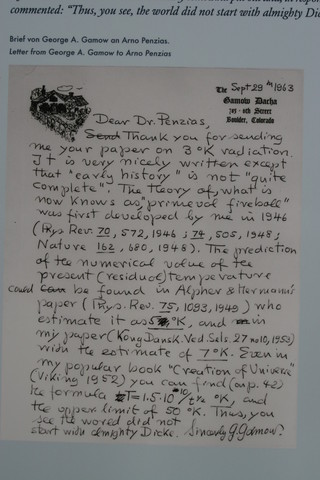 commented: "Thus, you see, the world did not start with almighty Dic
Brief von George A. Gamow an Arno Penzias.
Letter from George A. Gamow to Arno Penzias
The Sept 29th 1963
Gamow Dacha
785 - 6th Street
Boulder, Colorado
Dear Dr. Penzias,
Send Thank you for sending
me your paper on 3 °K radiation.
It is very nicely written except
that "early history" is not "quite
complete". The theory of, what is
now knows as, "primeval fireball"
was first developed by me in 1946
(Phys Rev. 70, 572, 1946; 74, 505, 1948;
Nature 162, 680, 1948). The prediction
of the numerical value of the
present (residue) temperature
could be found in Alpher & Hermann's
paper (Phys. Rev. 75, 1093, 1949) who
estimate it as 5 °K, and in
my paper (Kong Dansk. Ved. Sels. 27 no 10, 1953)
with the estimate of 7 °K. Even in
my popular book "Creation of Universe"
(Viking 1952) you can find (on p. 42)
the formula T=1.5·10¹⁰/t½ °K, and
the upper limit of 50 °K. Thus, you
see the world did not
start with almighty Dicke. Sincerly G. Gamow